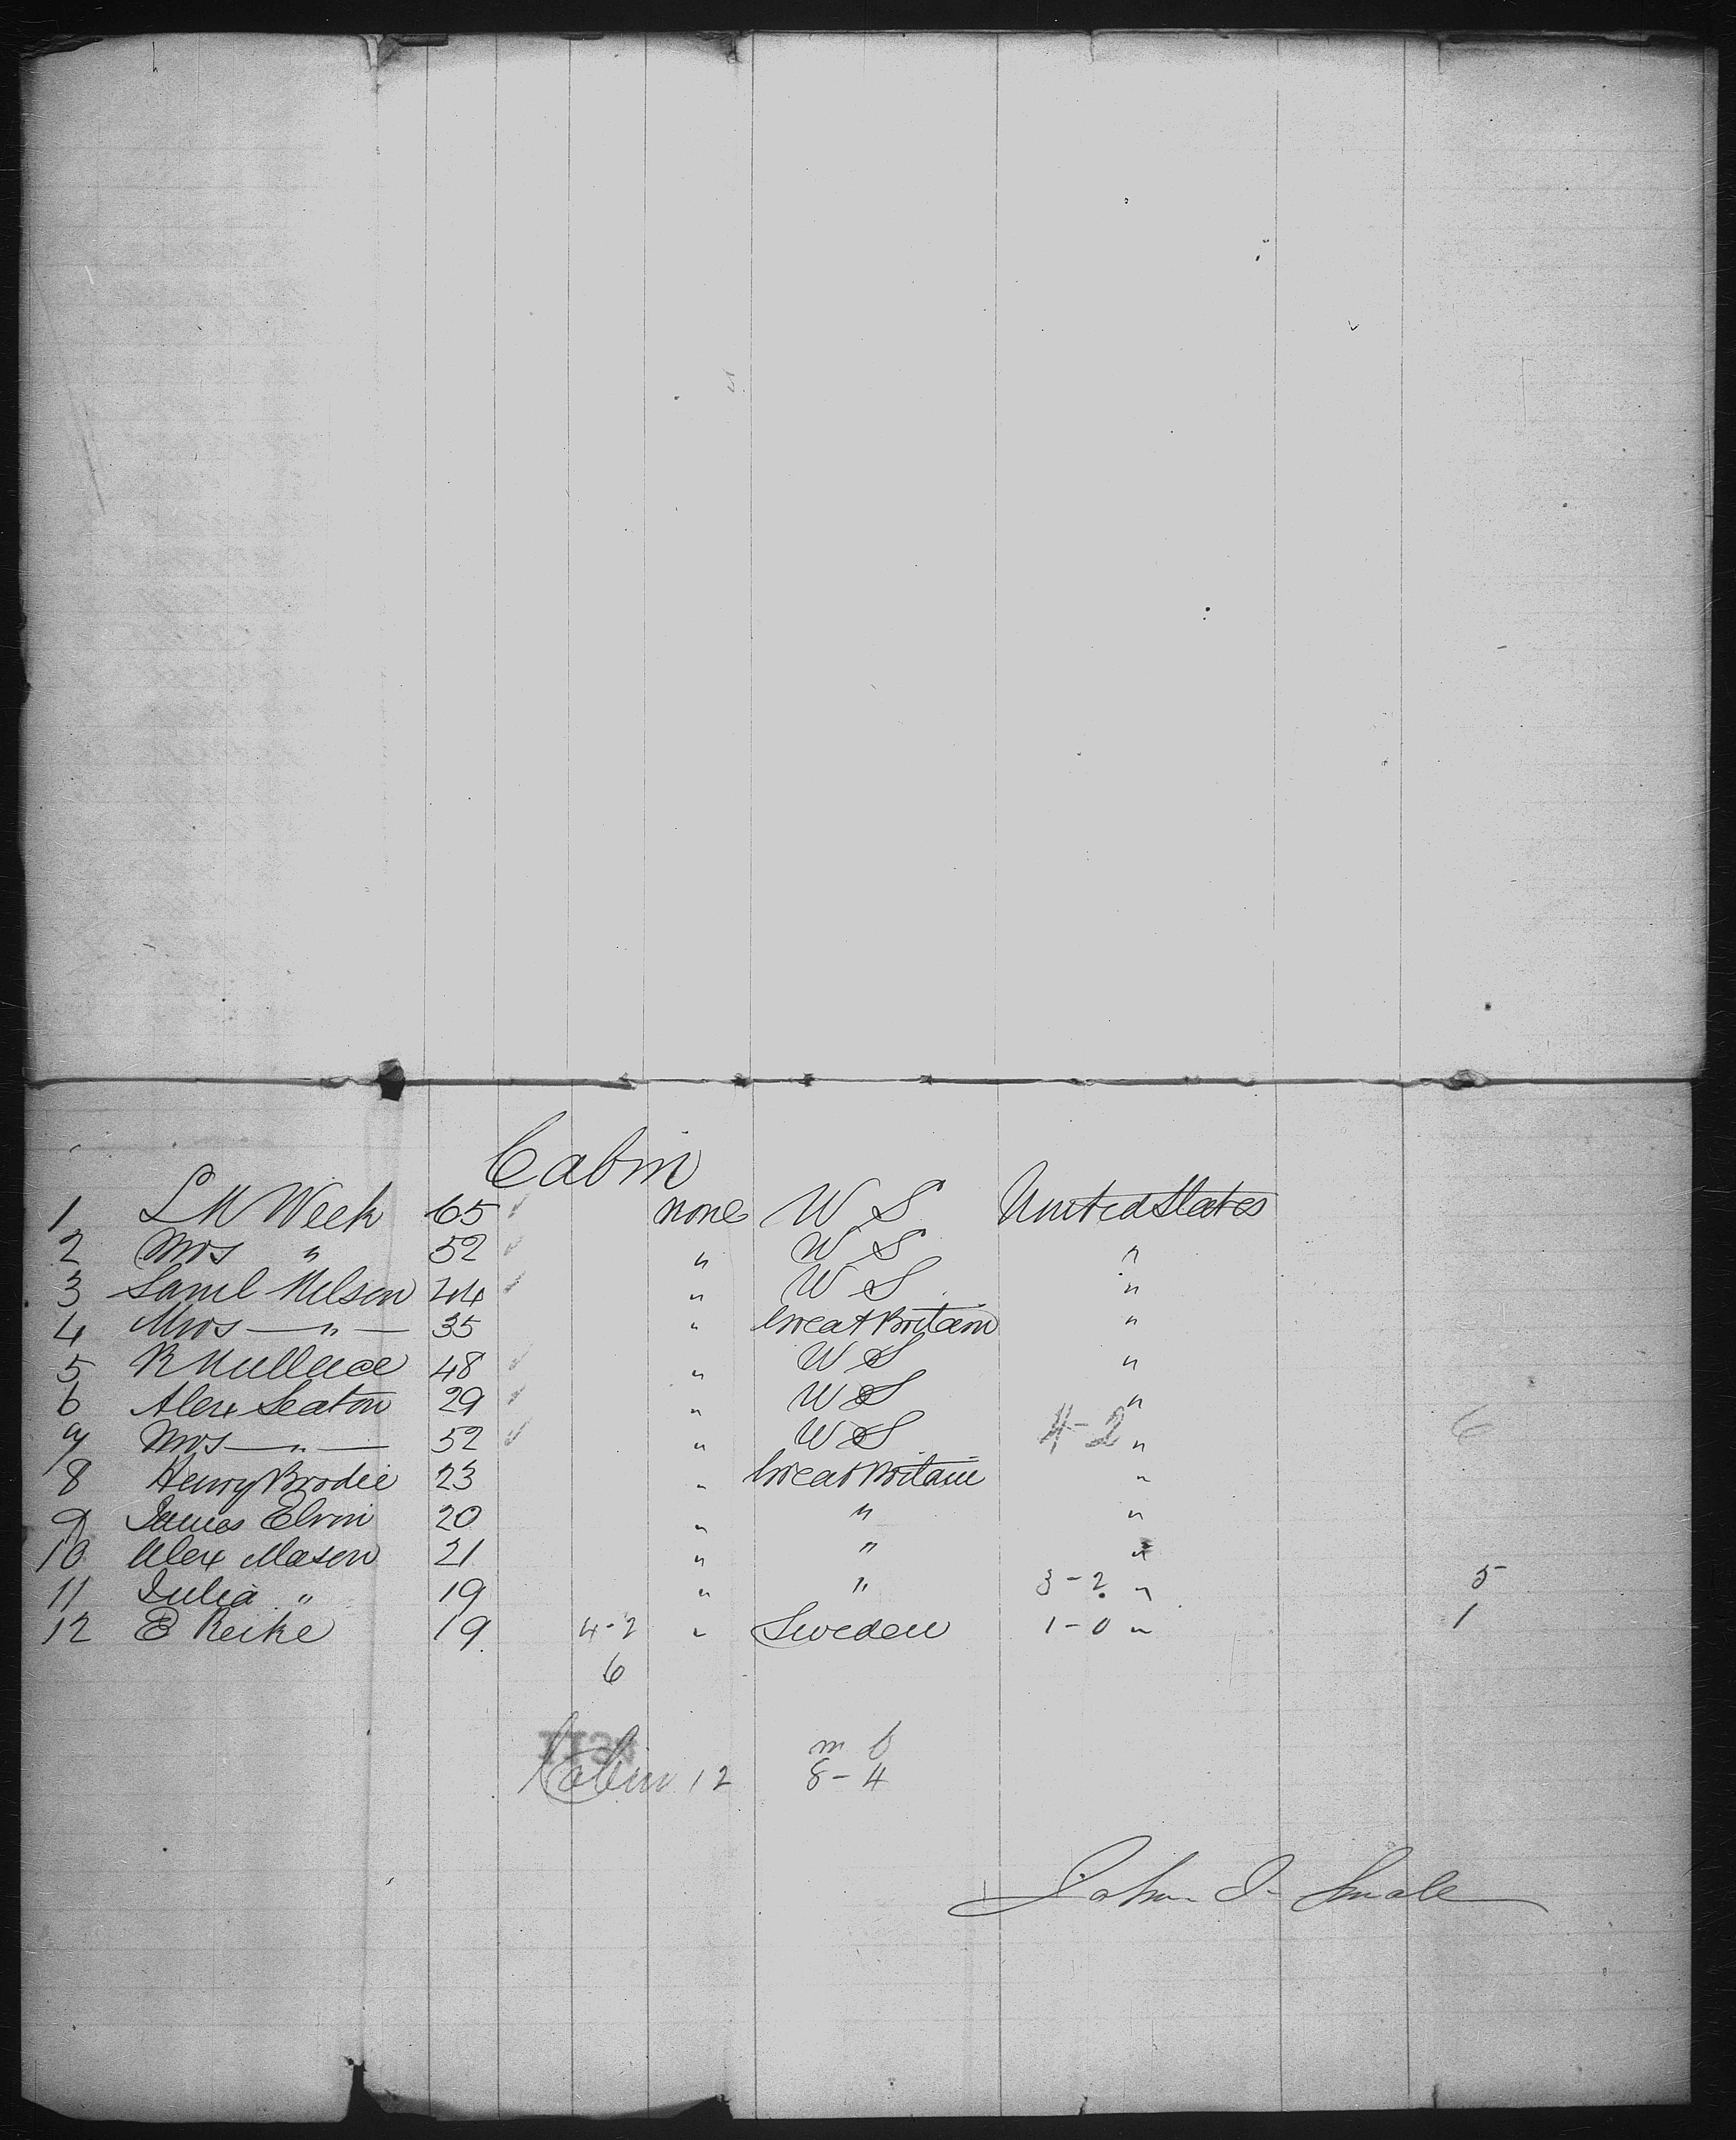 Cabin
1 L M Week 65 none U S United States
2 Mrs " 52 " U S "
3 Saml Nelson 44 " U S "
4 Mrs — " — 35 " Great Britain "
5 R 48 " U S "
6 Alex Seaton 29 " U S "
7 Mrs — " — 52 " U S 4-2 " 6
8 Henry Brodie 23 " Great Britain "
9 James Elvin 20 " " "
10 Alex Mason 21 " " "
11 Julia " 19 " " 3-2 " 5
12 E Reike 19 4-2 " Sweden 1-0 " 1
6
m f
Cabin 12 8-4
John